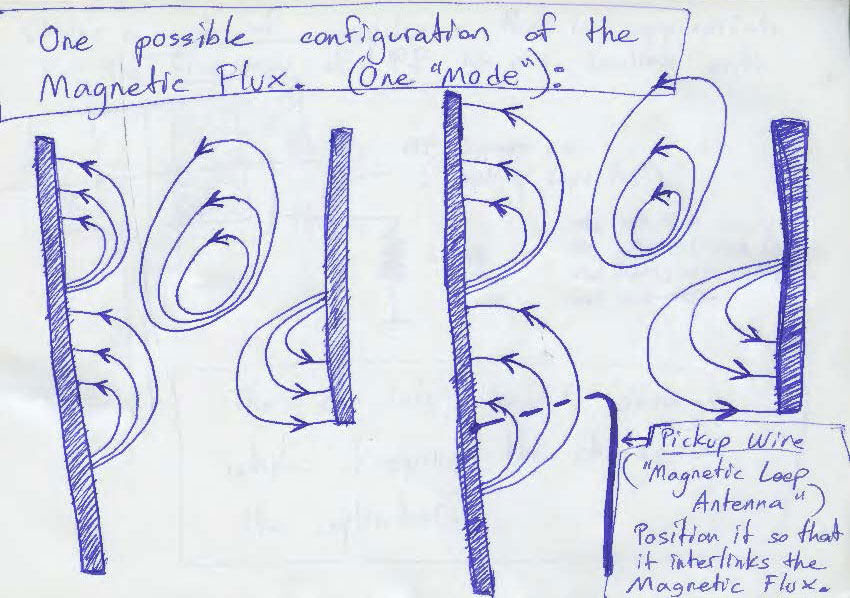 One possible configuration of the
Magnetic Flux. (One "Mode"):
Pickup Wire
("Magnetic Loop
Antenna")
Position it so that
it interlinks the
Magnetic Flux.